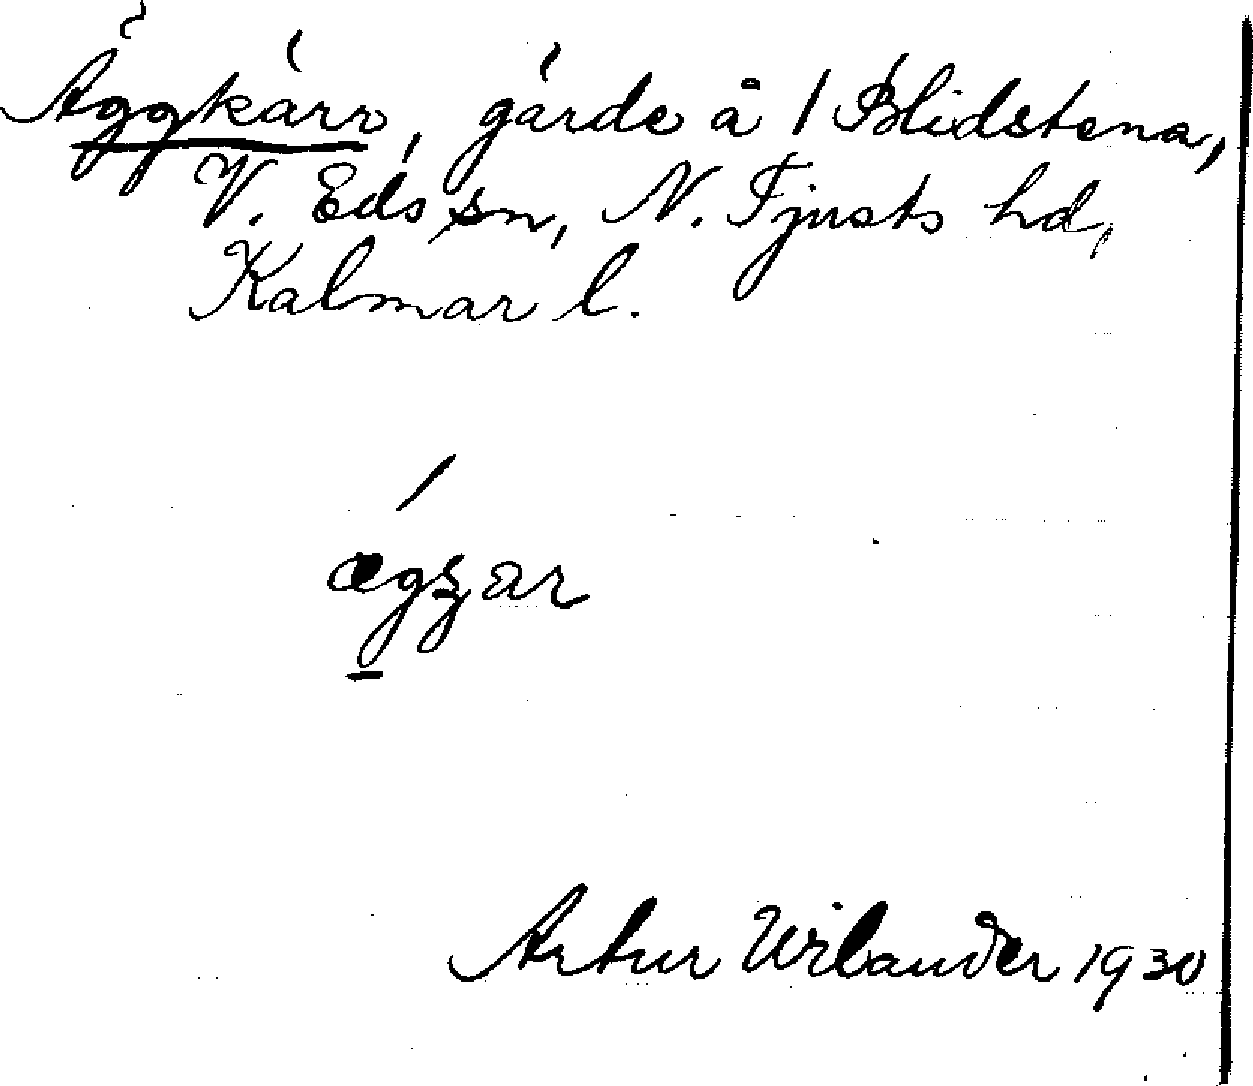 Äggkärr, gärde å 1 Blidstena,
V. Eds sn, N. Tjusts hd,
Kalmar l.
Artur Wilander 1930